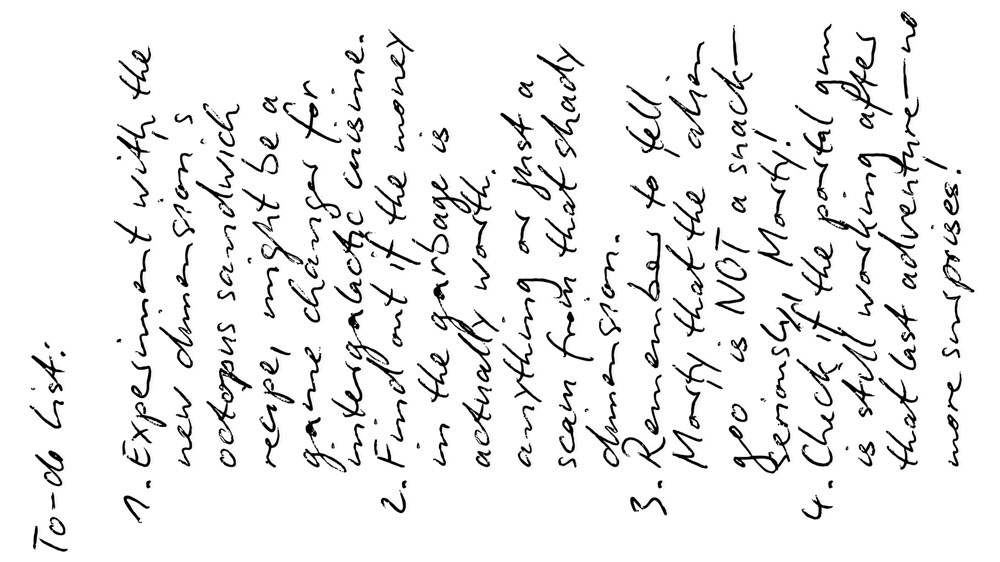 To-do List:
1. Experiment with the
new dimension's
octopus sandwich
recipe, might be a
game changer for
intergalactic cuisine.
2. Find out if the money
in the garbage is
actually worth.
anything or just a
scam from that shady
dimension.
3. Remember to tell
Morty that the alien
goo is NOT a snack—
seriously, Morty!
4. Check if the portal gun
is still working after
that last adventure—no
more surprises!